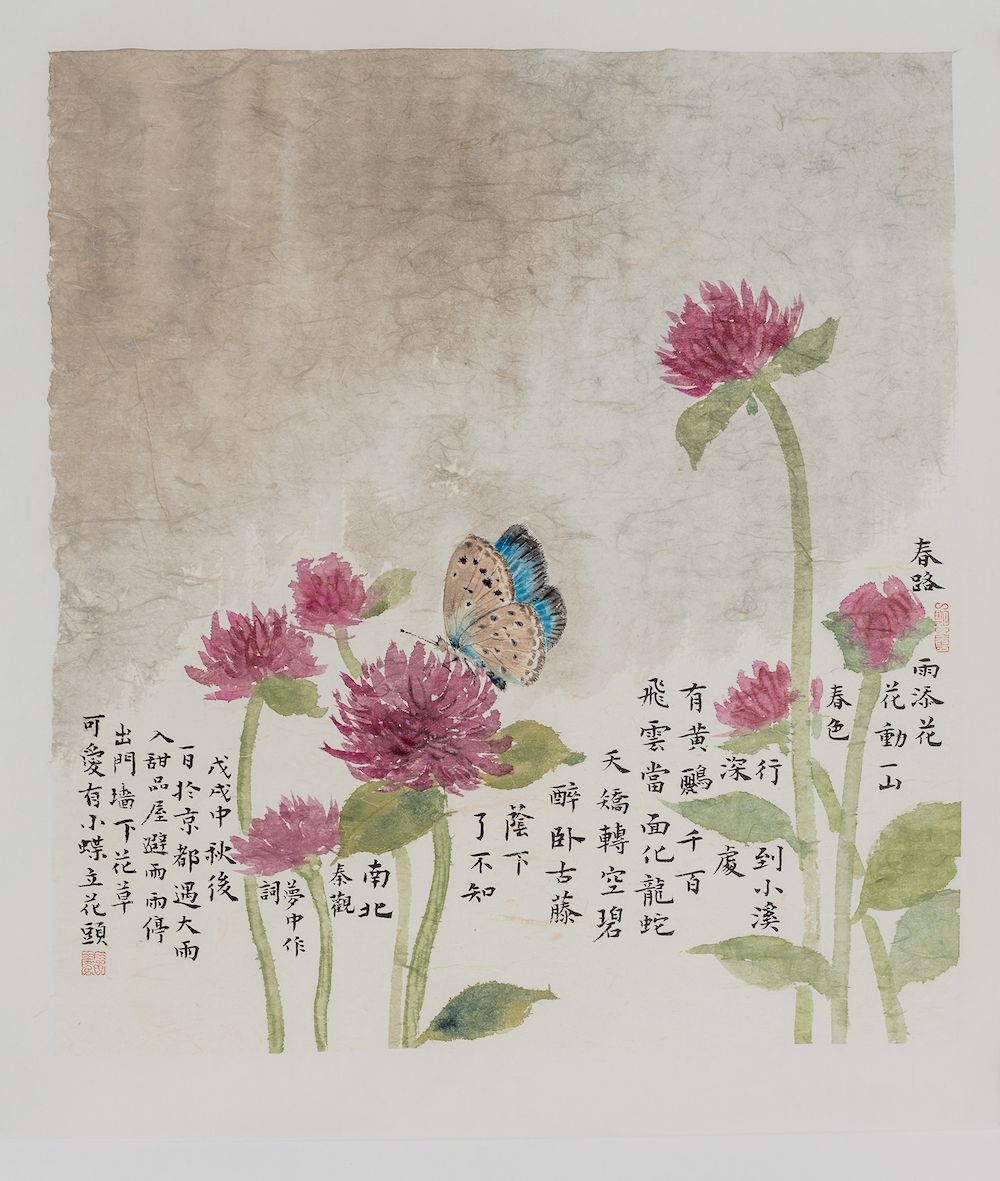 春路雨添花
花動一山
春色
行到小溪
深處
有黄鸝千百
飛雲當面化龍蛇
夭矯轉空碧
醉卧古藤
蔭下
了不知
南北
秦觀
夢中作
詞
戊戌中秋後
一日於京都遇大雨
入甜品屋避雨雨停
出門墙下花草
可愛有小蝶立花頭